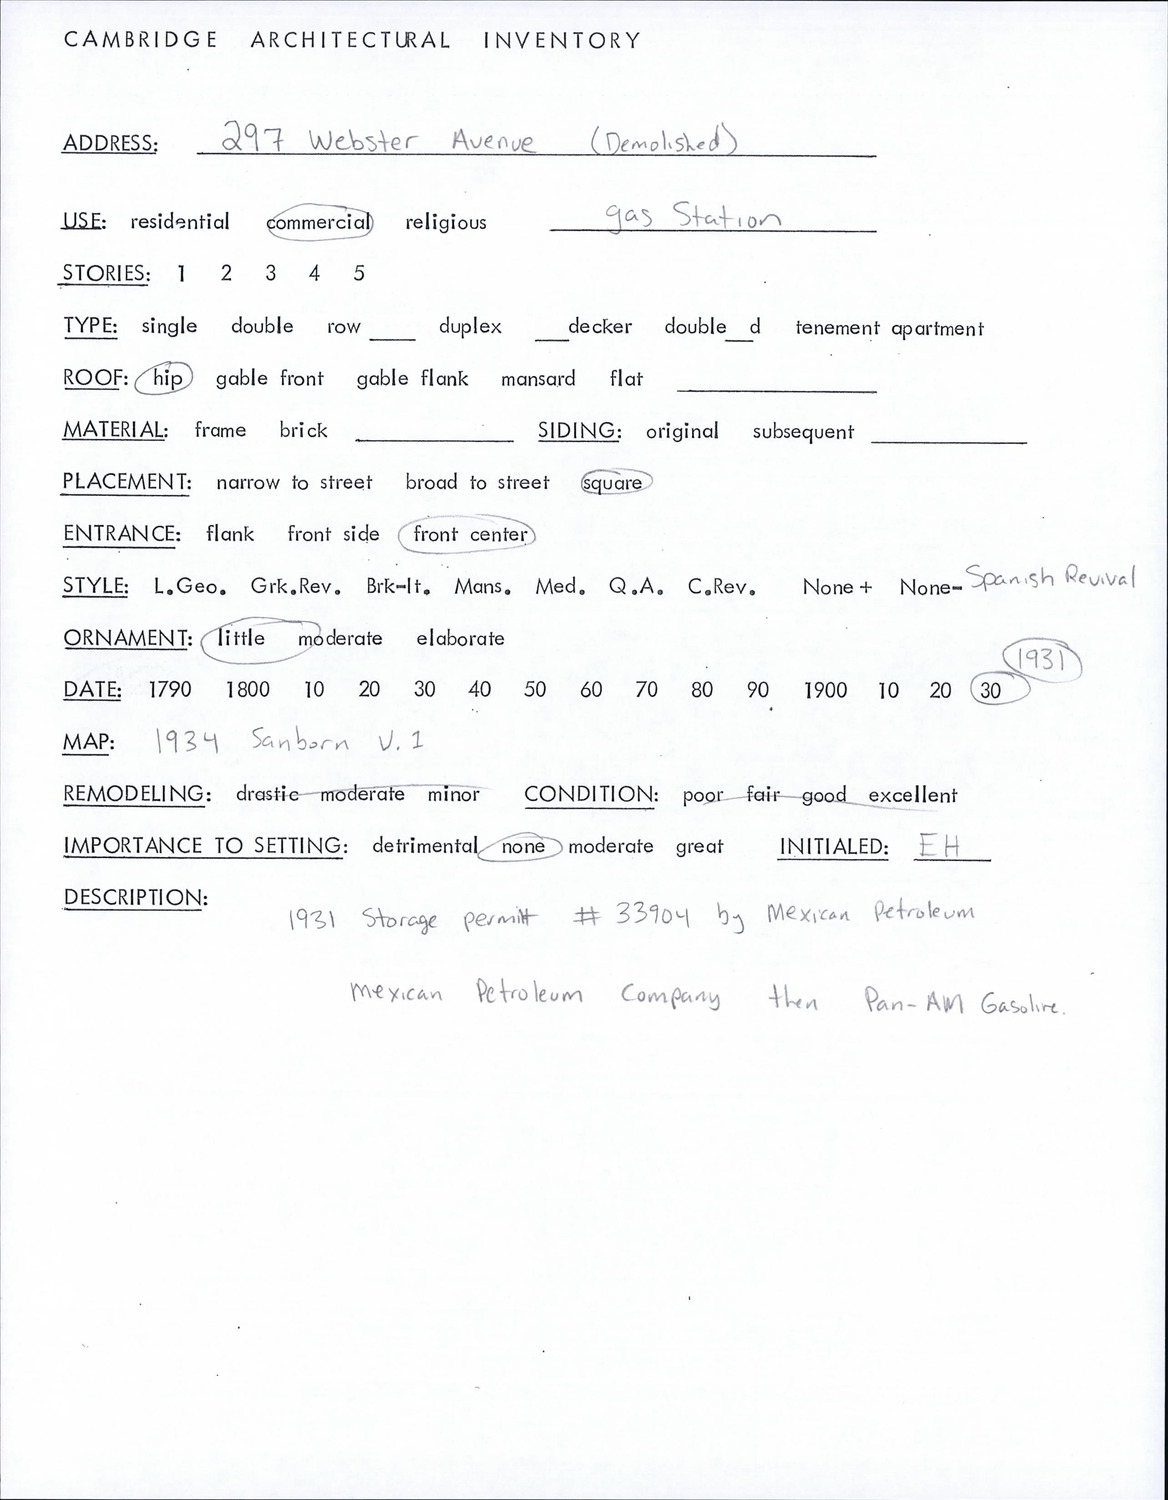 CAMBRIDGE ARCHITECTURAL INVENTORY
ADDRESS: 297 Webster Avenue (Demolished)
USE: residential commercial religious gas Station
STORIES: 1 2 3 4 5
TYPE: single double row ___ duplex ___decker double__d tenement apartment
ROOF: hip gable front gable flank mansard flat
MATERIAL: frame brick SIDING: original subsequent
PLACEMENT: narrow to street broad to street square
ENTRANCE: flank front side front center
STYLE: L.Geo. Grk.Rev. Brk-It. Mans. Med. Q.A. C.Rev. None+ None- Spanish Revival
ORNAMENT: little moderate elaborate
1931
DATE: 1790 1800 10 20 30 40 50 60 70 80 90 1900 10 20 30
MAP: 1934 Sanborn V. 1
REMODELING: drastic moderate minor CONDITION: poor fair good excellent
IMPORTANCE TO SETTING: detrimental none moderate great INITIALED: EH
DESCRIPTION:
1931 Storage permitt # 33904 by Mexican Petroleum
Mexican Petroleum Company then Pan-AM Gasoline.